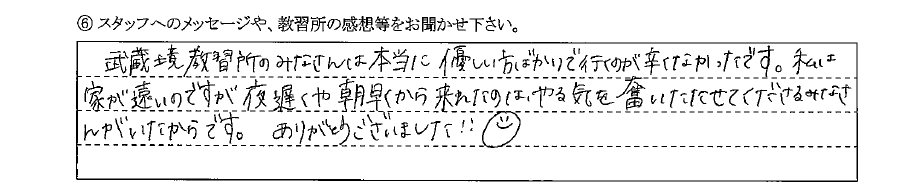 ⑥ スタッフへのメッセージや、教習所の感想等をお聞かせ下さい。
武蔵境教習所のみなさんは本当に優しい方ばかりで行くのが辛くなかったです。私は
家が遠いのですが夜遅くや朝早くから来れたのは、やる気を奮いたたせてくださるみなさ
んがいたからです。 ありがとうございました!!